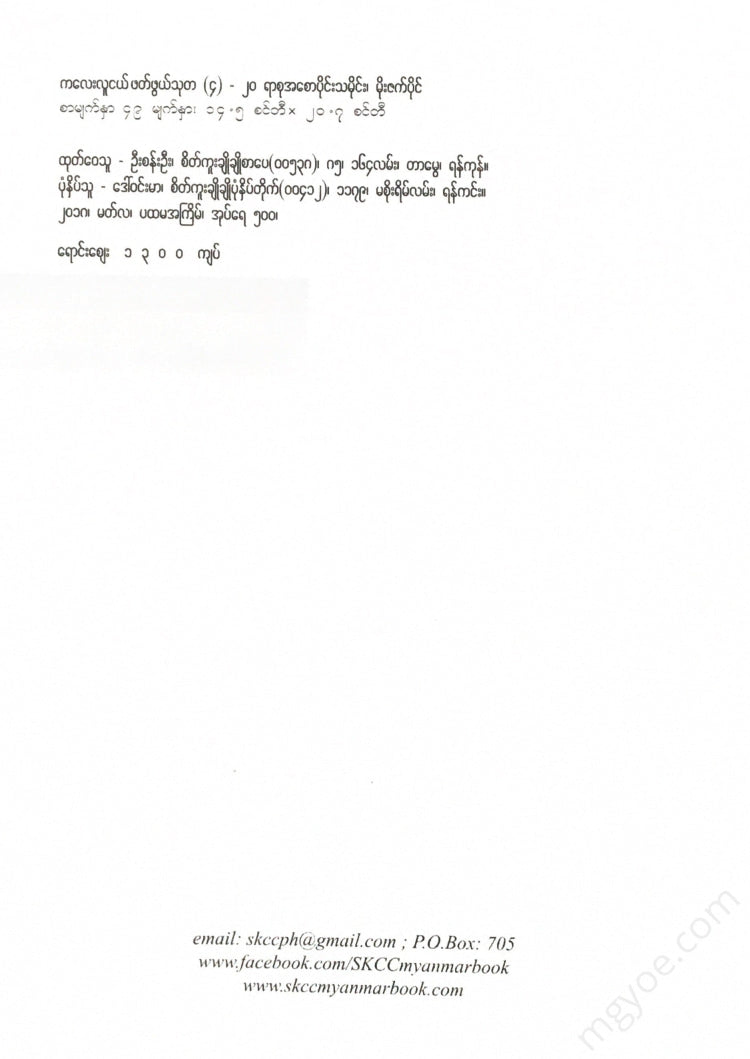 ကလေးလူငယ်ဖတ်ဖွယ်သုတ (၄) - ၂၀ ရာစုအစောပိုင်းသမိုင်း၊ မိုးဇက်ပိုင်
စာမျက်နှာ ၄၉ မျက်နှား ၁၄.၅ စင်တီ× ၂၀.၇ စင်တီ
ထုတ်ဝေသူ - ဦးစန်းဦး၊ စိတ်ကူးချိုချိုစာပေ(၀၀၅၃၈)၊ ဂ၅၊ ၁၆၄လမ်း၊ တာမွေ၊ ရန်ကုန်။
ပုံနှိပ်သူ - ဒေါ်ဝင်းမာ၊ စိတ်ကူးချိုချိုပုံနှိပ်တိုက်(၀၀၄၁၂)၊ ၁၁၇၉၊ မစိုးရိမ်လမ်း၊ ရန်ကင်း။
၂၀၁၈၊ မတ်လ၊ ပထမအကြိမ်၊ အုပ်ရေ ၅၀၀၊
ရောင်းဈေး ၁ ၃ ၀ ၀ ကျပ်
email: skccph@gmail.com ; P.O.Box: 705
www.facebook.com/SKCCmyanmarbook
www.skccmyanmarbook.com
mgyoe.com